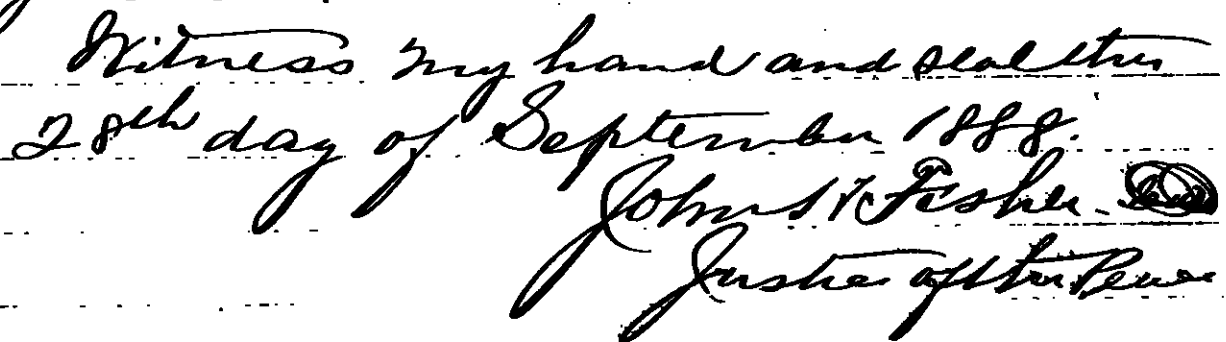 Witness my hand and seal this
28th day of September 1888.
John Fisher
Justice of the Peace